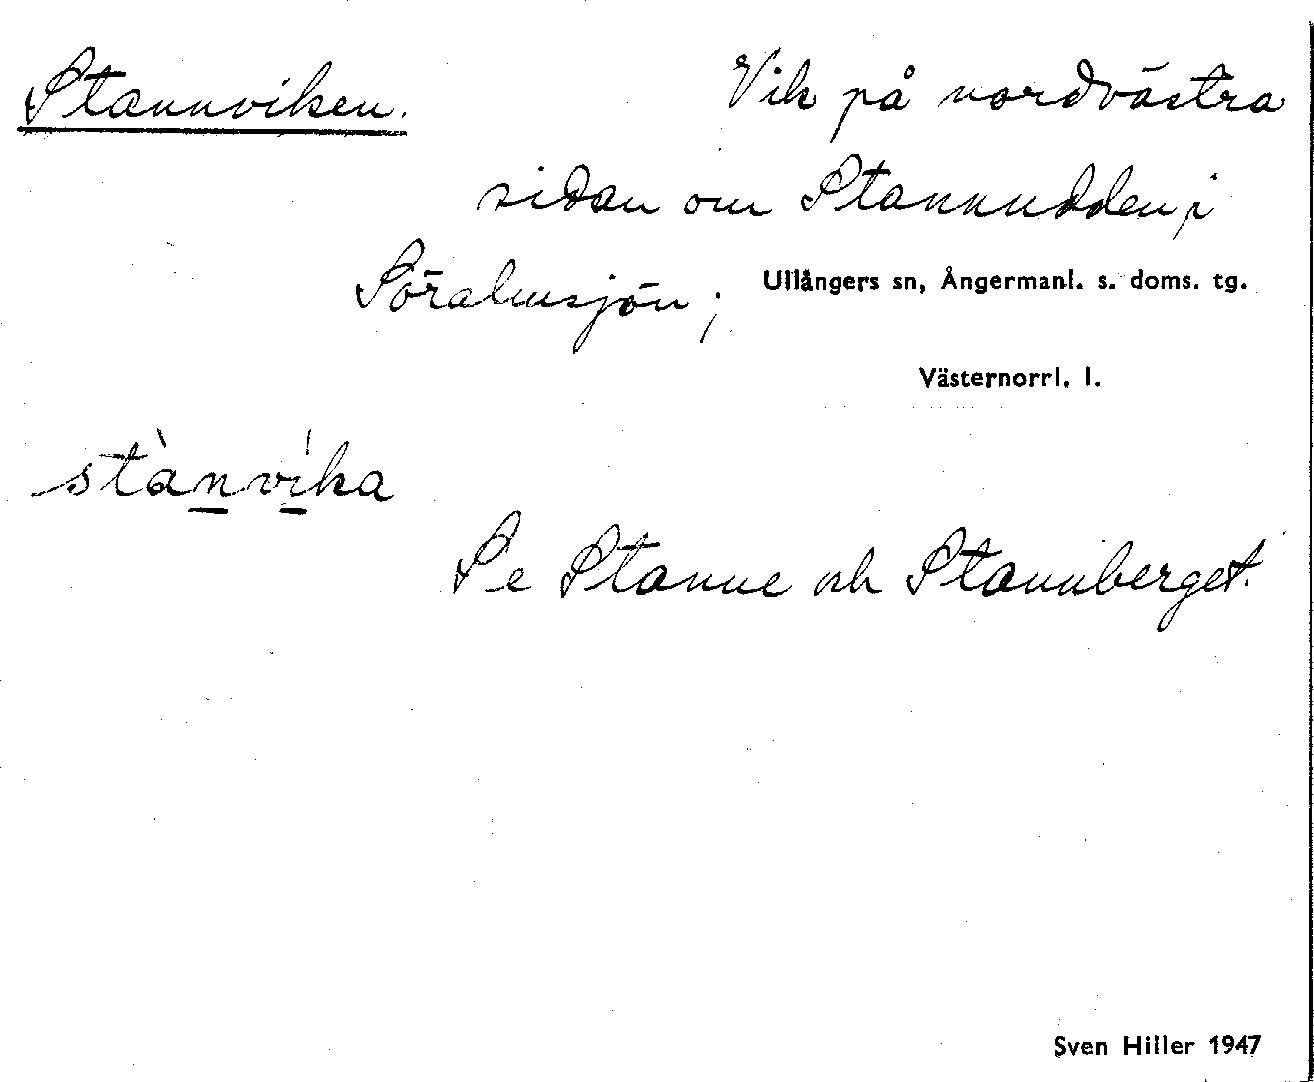 Stannviken. Vik på nordvästra
sidan om Stannudden i
Söralensjön; Ullångers sn, Ångermanl. s. doms. tg.
Västernorrl. l.
stànvíka
Se Stanne och Stannberget.
Sven Hiller 1947